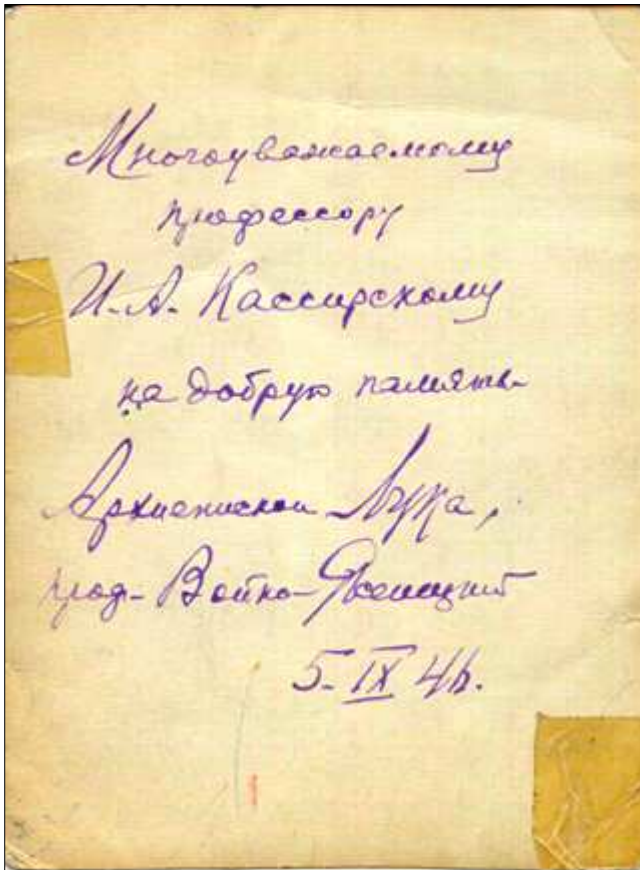 Многоуважаемому
профессору
И. А. Кассирскому
на добрую память
Архиепископ Лука,
проф. Войно-Ясенецкий
5. IX 46.